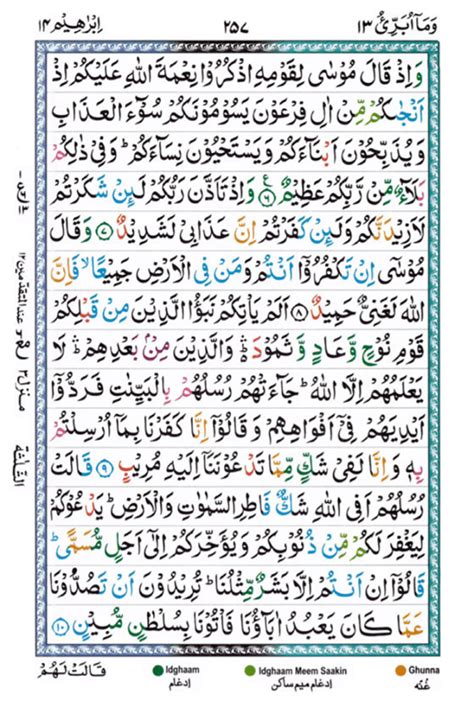 وَمَاۤ اُبَرِّئُ ۱۳ ۲۵۷ اِبْرٰهِيْم ۱۴
وَاِذْ قَالَ مُوْسٰى لِقَوْمِهِ اذْكُرُوْا نِعْمَةَ اللّٰهِ عَلَيْكُمْ اِذْ
اَنْجٰىكُمْ مِّنْ اٰلِ فِرْعَوْنَ يَسُوْمُوْنَكُمْ سُوْٓءَ الْعَذَابِ
وَيُذَبِّحُوْنَ اَبْنَآءَكُمْ وَيَسْتَحْيُوْنَ نِسَآءَكُمْ ؕ وَفِيْ ذٰلِكُمْ
بَلَآءٌ مِّنْ رَّبِّكُمْ عَظِيْمٌ ۶ وَاِذْ تَاَذَّنَ رَبُّكُمْ لَئِنْ شَكَرْتُمْ
لَاَزِيْدَنَّكُمْ وَلَئِنْ كَفَرْتُمْ اِنَّ عَذَابِيْ لَشَدِيْدٌ ۷ وَقَالَ
مُوْسٰٓى اِنْ تَكْفُرُوْٓا اَنْتُمْ وَمَنْ فِى الْاَرْضِ جَمِيْعًا ۙ فَاِنَّ
اللّٰهَ لَغَنِيٌّ حَمِيْدٌ ۸ اَلَمْ يَاْتِكُمْ نَبَؤُا الَّذِيْنَ مِنْ قَبْلِكُمْ
قَوْمِ نُوْحٍ وَّعَادٍ وَّثَمُوْدَ ۛؕ وَالَّذِيْنَ مِنْۢ بَعْدِهِمْ ۛؕ لَا
يَعْلَمُهُمْ اِلَّا اللّٰهُ ؕ جَآءَتْهُمْ رُسُلُهُمْ بِالْبَيِّنٰتِ فَرَدُّوْٓا
اَيْدِيَهُمْ فِيْٓ اَفْوَاهِهِمْ وَقَالُوْٓا اِنَّا كَفَرْنَا بِمَآ اُرْسِلْتُمْ
بِهٖ وَاِنَّا لَفِيْ شَكٍّ مِّمَّا تَدْعُوْنَنَآ اِلَيْهِ مُرِيْبٍ ۹ قَالَتْ
رُسُلُهُمْ اَفِى اللّٰهِ شَكٌّ فَاطِرِ السَّمٰوٰتِ وَالْاَرْضِ ؕ يَدْعُوْكُمْ
لِيَغْفِرَ لَكُمْ مِّنْ ذُنُوْبِكُمْ وَيُؤَخِّرَكُمْ اِلٰٓى اَجَلٍ مُّسَمًّى ؕ
قَالُوْٓا اِنْ اَنْتُمْ اِلَّا بَشَرٌ مِّثْلُنَا ؕ تُرِيْدُوْنَ اَنْ تَصُدُّوْنَا
عَمَّا كَانَ يَعْبُدُ اٰبَآؤُنَا فَاْتُوْنَا بِسُلْطٰنٍ مُّبِيْنٍ ۱۰
قَالَتْ لَهُمْ
Idghaam Idghaam Meem Saakin Ghunna
ادغام ادغام میم ساکن غُنّہ